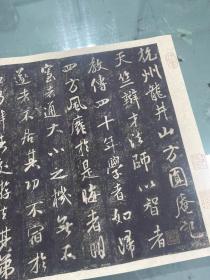 杭州龍井山方圓庵記
天竺辯才法師以智者
教傳四十年學者如歸
四方風靡於是晦者明
窒者通大小之機無不
遂者不居其功不宿於